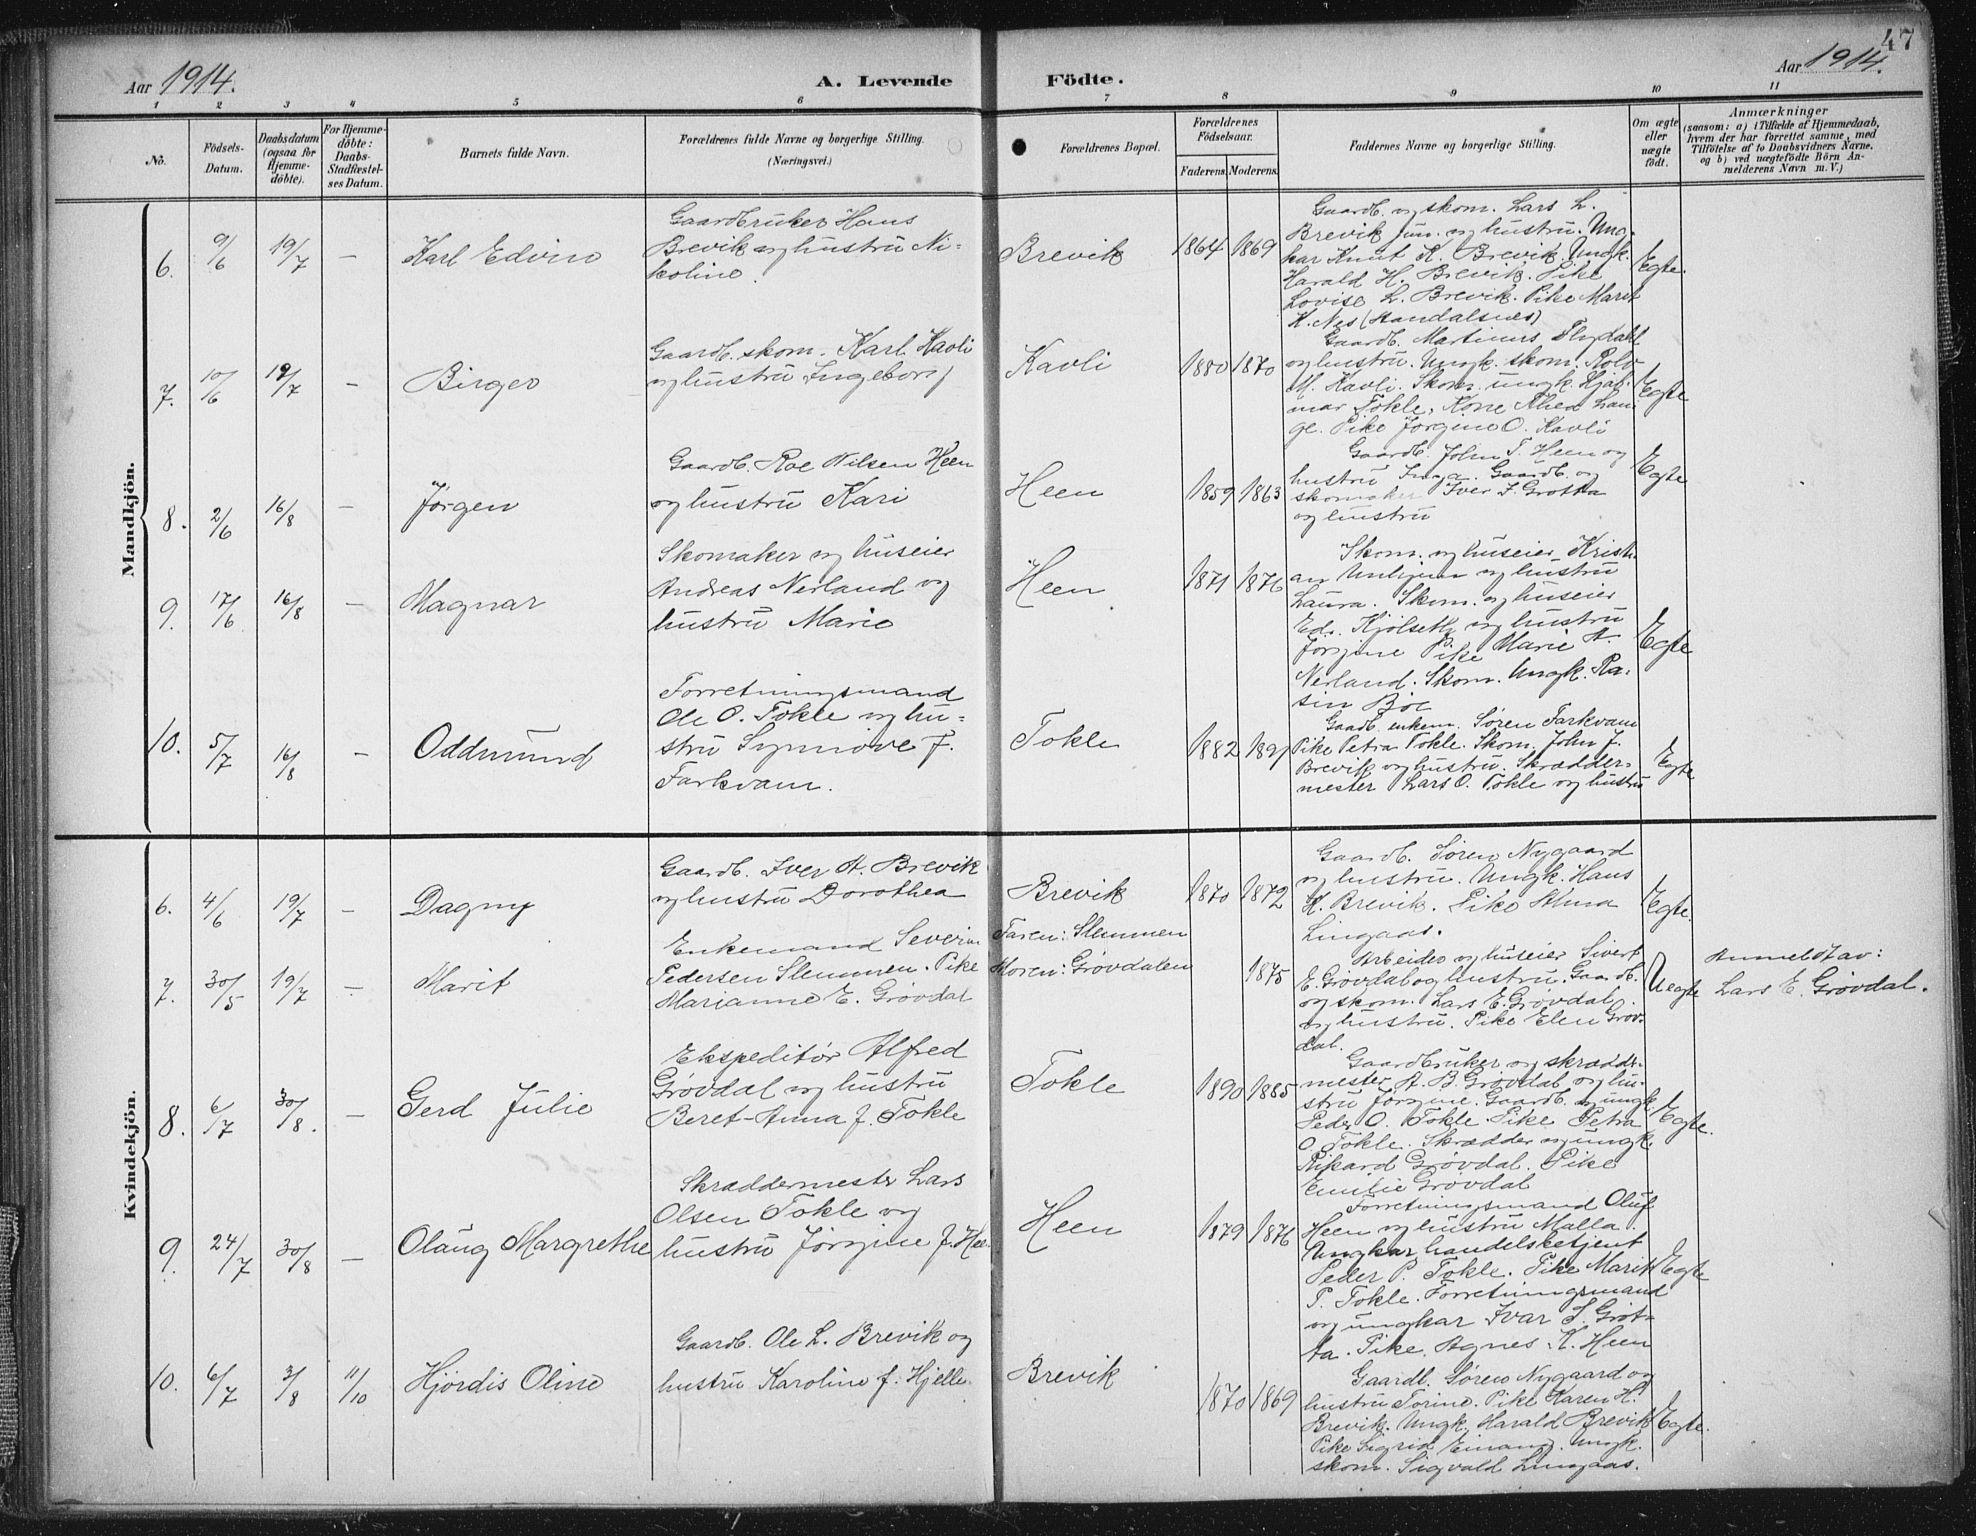 47
Aar 1914.
A. Levende Födte.
Aar 1914.
1 2 3 4 5 6 7 8 9 10 11
No.
Födsels-
Datum.
Daabsdatum
(ogsaa for
Hjemme-
döbte).
For Hjemme-
döbte:
Daabs-
Stadfæstel-
ses Datum.
Barnets fulde Navn.
Forældrenes fulde Navne og borgerlige Stilling.
(Næringsvei.)
Forældrenes Bopæl.
Forældrenes
Födselsaar.
Faderens. Moderens.
Faddernes Navne og borgerlige Stilling.
Om ægte
eller
uægte
födt.
Anmærkninger
(saasom: a) i Tilfælde af Hjemmedaab,
hvem der har forrettet samme, med
Tilföielse af to Daabsvidners Navne,
og b) ved uægtefödte Börn An-
melderens Navn m. V.)
Mandkjön.
6. 9/6 19/7 — Karl Edvin
Gaardbruker Hans
Brevik og hustru Ni-
koline.
Brevik 1864 1869
Gaardb. og skom. Lars L.
Brevik jun. og hustru. Ung-
kar Knut K. Brevik. Ungk.
Harald H. Brevik. Pike
Lovise L. Brevik. Pike Marit
K. Nes (Handalsnes)
Egte.
7. 10/6 19/7 — Birger
Gaardb. skom. Karl Kavli
og hustru Ingeborg
Kavli 1880 1870
Gaardb. Martinus Flydahl
og hustru. Ungk. skom. Rolv
M. Kavli. Skom. ungk. Hjal-
mar Tokle. Kone Thea Lan-
ge. Pike Jørgine O. Kavli
Egte
8. 2/6 16/8 — Jørgen
Gaardb. Roe Nilsen Heen
og hustru Kari
Heen 1859 1863
Gaardb. John T. Heen og
hustru Inga. Gaardb. og
skomaker Iver I. Grotta
og hustru
Egte
9. 17/6 16/8 — Magnar
Skomaker og huseier
Andreas Nerland og
hustru Marie
Heen 1871 1876
Skom. og huseier Kristi-
an Unhjem og hustru
Laura. Skom. og huseier
Edv. Kjølseth og hustru
Jørgine Pike Marie A.
Nerland. Skom. Ungk. Ra-
sin Boe
Egte
10. 5/7 16/8 — Oddmund
Forretningsmand
Ole O. Tokle og hu-
stru Synnøve f.
Farkvam.
Tokle 1882 1891
Gaardb. enkem. Søren Farkvam
Pike Petra Tokle. Skom. John J.
Brevik og hustru. Skrædder-
mester Lars O. Tokle og hustru
Egte
Kvindekjön.
6. 4/6 19/7 — Dagny
Gaardb. Iver A. Brevik
og hustru Dorothea
Brevik 1870 1872
Gaardb. Søren Nygaard
og hustru. Ungk. Hans
K. Brevik. Pike Alma
Lingaas.
Egte.
7. 30/5 19/7 — Marit
Enkemand Severin
Pedersen Slemmen. Pike
Marianne E. Grøvdal
Faren: Slemmen
Moren: Grøvdalen
1875
Arbeider og huseier Sivert
E. Grøvdal og hustru. Gaardb.
og skom. Lars E. Grøvdal
og hustru. Pike Elen Grøv-
dal.
Uegte
Anmeldt av:
Lars E. Grøvdal.
8. 6/7 30/8. — Gerd Julie
Ekspeditør Alfred
Grøvdal og hustru
Beret-Anna f. Tokle
Tokle 1890 1885
Gaardbruker og skrædder-
mester A. B. Grøvdal og hu-
stru Jørgine. Gaardb. og ungk.
Peder O. Tokle. Pike Petra
O. Tokle. Skrædder og ungk.
Rikard Grøvdal. Pike
Emilie Grøvdal
Egte.
9. 24/7 30/8 — Olaug Margrethe
Skræddermester Lars
Olsen Tokle og
hustru Jørgine f. Hee-
Heen 1879 1876
Forretningsmand Oluf
Heen og hustru Malla.
Ungkar handelsbetjent
Peder P. Tokle. Pike Marit
P. Tokle. Forretningsmand
og ungkar Ivar I. Grot-
ta. Pike Agnes K. Heen
Egte
10. 6/7 3/8 11/10 Hjørdis Oline
Gaardb. Ole L. Brevik og
hustru Karoline f. Hjelle.
Brevik 1870 1869
Gaardb. Søren Nygaard og
hustru Torine. Pike Karen H.
Brevik. Ungk. Harald Brevik
Pike Sigrid Einang. Ungk.
skom. Sigvald Lingaas.
Egte.